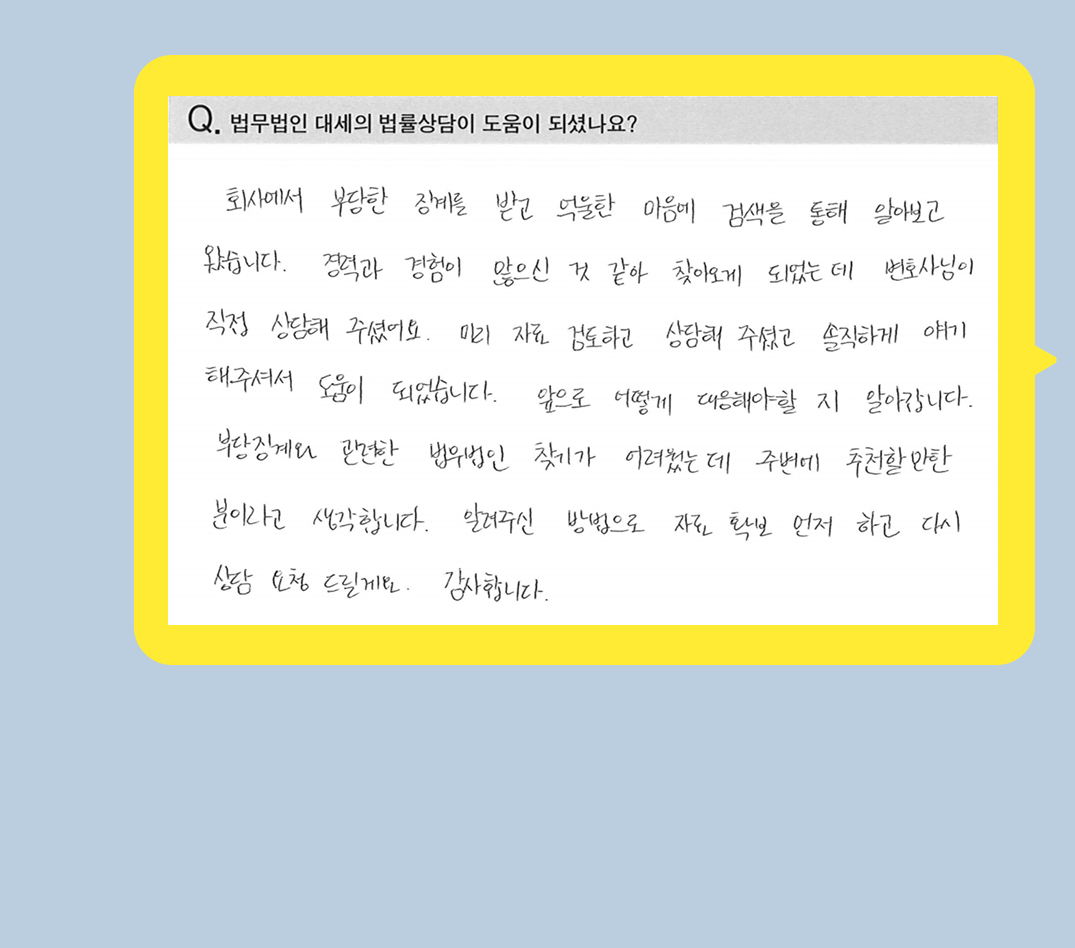 Q. 법무법인 대세의 법률상담이 도움이 되셨나요?
회사에서 부당한 징계를 받고 억울한 마음에 검색을 통해 알아보고
왔습니다. 경력과 경험이 많으신 것 같아 찾아오게 되었는데 변호사님이
직접 상담해 주셨어요. 미리 자료 검토하고 상담해 주셨고 솔직하게 얘기
해주셔서 도움이 되었습니다. 앞으로 어떻게 대응해야할 지 알아갑니다.
부당징계와 관련한 법무법인 찾기가 어려웠는데 주변에 추천할만한
분이라고 생각합니다. 알려주신 방법으로 자료 확보 먼저 하고 다시
상담 요청 드릴게요. 감사합니다.